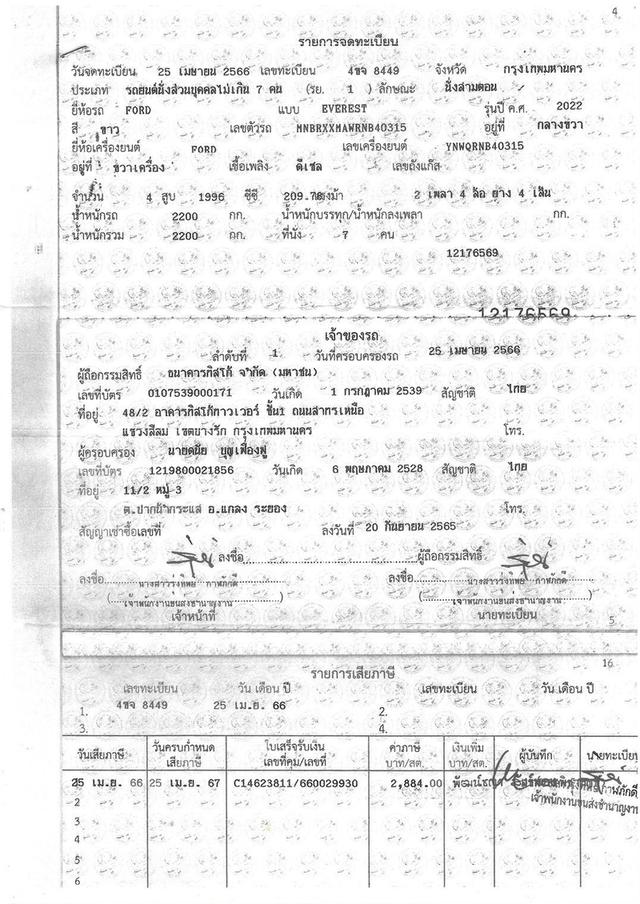 4
รายการจดทะเบียน
วันจดทะเบียน 25 เมษายน 2566 เลขทะเบียน 4ขจ 8449 จังหวัด กรุงเทพมหานคร
ประเภท รถยนต์นั่งส่วนบุคคลไม่เกิน 7 คน (รย. 1 ) ลักษณะ นั่งสามตอน
ยี่ห้อรถ FORD แบบ EVEREST รุ่นปี ค.ศ. 2022
สี ขาว เลขตัวรถ MNBRXXMAWRNB40315 อยู่ที่ กลางขวา
ยี่ห้อเครื่องยนต์ FORD เลขเครื่องยนต์ YNWQRNB40315
อยู่ที่ ขวาเครื่อง เชื้อเพลิง ดีเซล เลขถังแก๊ส
จำนวน 4 สูบ 1996 ซีซี 209.78 แรงม้า 2 เพลา 4 ล้อ ยาง 4 เส้น
น้ำหนักรถ 2200 กก. น้ำหนักบรรทุก/น้ำหนักลงเพลา กก.
น้ำหนักรวม 2200 กก. ที่นั่ง 7 คน
12176569
12176569
เจ้าของรถ
ลำดับที่ 1 วันที่ครอบครองรถ 25 เมษายน 2566
ผู้ถือกรรมสิทธิ์ ธนาคารทิสโก้ จำกัด (มหาชน)
เลขที่บัตร 0107539000171 วันเกิด 1 กรกฎาคม 2539 สัญชาติ ไทย
ที่อยู่ 48/2 อาคารทิสโก้ทาวเวอร์ ชั้น1 ถนนสาทรเหนือ
แขวงสีลม เขตบางรัก กรุงเทพมหานคร โทร.
ผู้ครอบครอง นายดนัย บุญเฟื่องฟู
เลขที่บัตร 1219800021856 วันเกิด 6 พฤษภาคม 2528 สัญชาติ ไทย
ที่อยู่ 11/2 หมู่ 3
ต.ปากน้ำกระแส อ.แกลง ระยอง โทร.
สัญญาเช่าซื้อเลขที่ ลงวันที่ 20 กันยายน 2565
ลงชื่อ ผู้ถือกรรมสิทธิ์
ลงชื่อ นางสาวรุ่งทิพย์ กาฬภักดี ลงชื่อ นางสาวรุ่งทิพย์ กาฬภักดี
(เจ้าพนักงานขนส่งชำนาญงาน) (เจ้าพนักงานขนส่งชำนาญงาน)
เจ้าหน้าที่ นายทะเบียน
5
16
รายการเสียภาษี
เลขทะเบียน วัน เดือน ปี เลขทะเบียน วัน เดือน ปี
1. 4ขจ 8449 25 เม.ย. 66 2.
3. 4.
วันเสียภาษี วันครบกำหนดเสียภาษี ใบเสร็จรับเงิน เลขที่คุม/เลขที่ ค่าภาษี บาท/สต. เงินเพิ่ม บาท/สต. ผู้บันทึก นายทะเบียน
25 เม.ย. 66 25 เม.ย. 67 C14623811/660029930 2,884.00
เจ้าพนักงานขนส่งชำนาญงาน
2
3
4
5
6